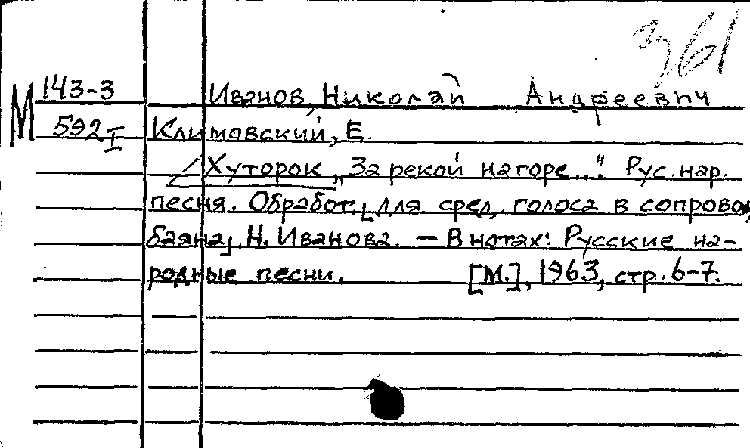 361
М 143-3 Иванов, Николай Андреевич
592 I Климовский, Е.
Хуторок „За рекой на горе..." Рус. нар.
песня. Обработ. [для сред. голоса в сопровож
баяна] Н. Иванова. — В нотах: Русские на-
родные песни. [М.], 1963, стр. 6-7.